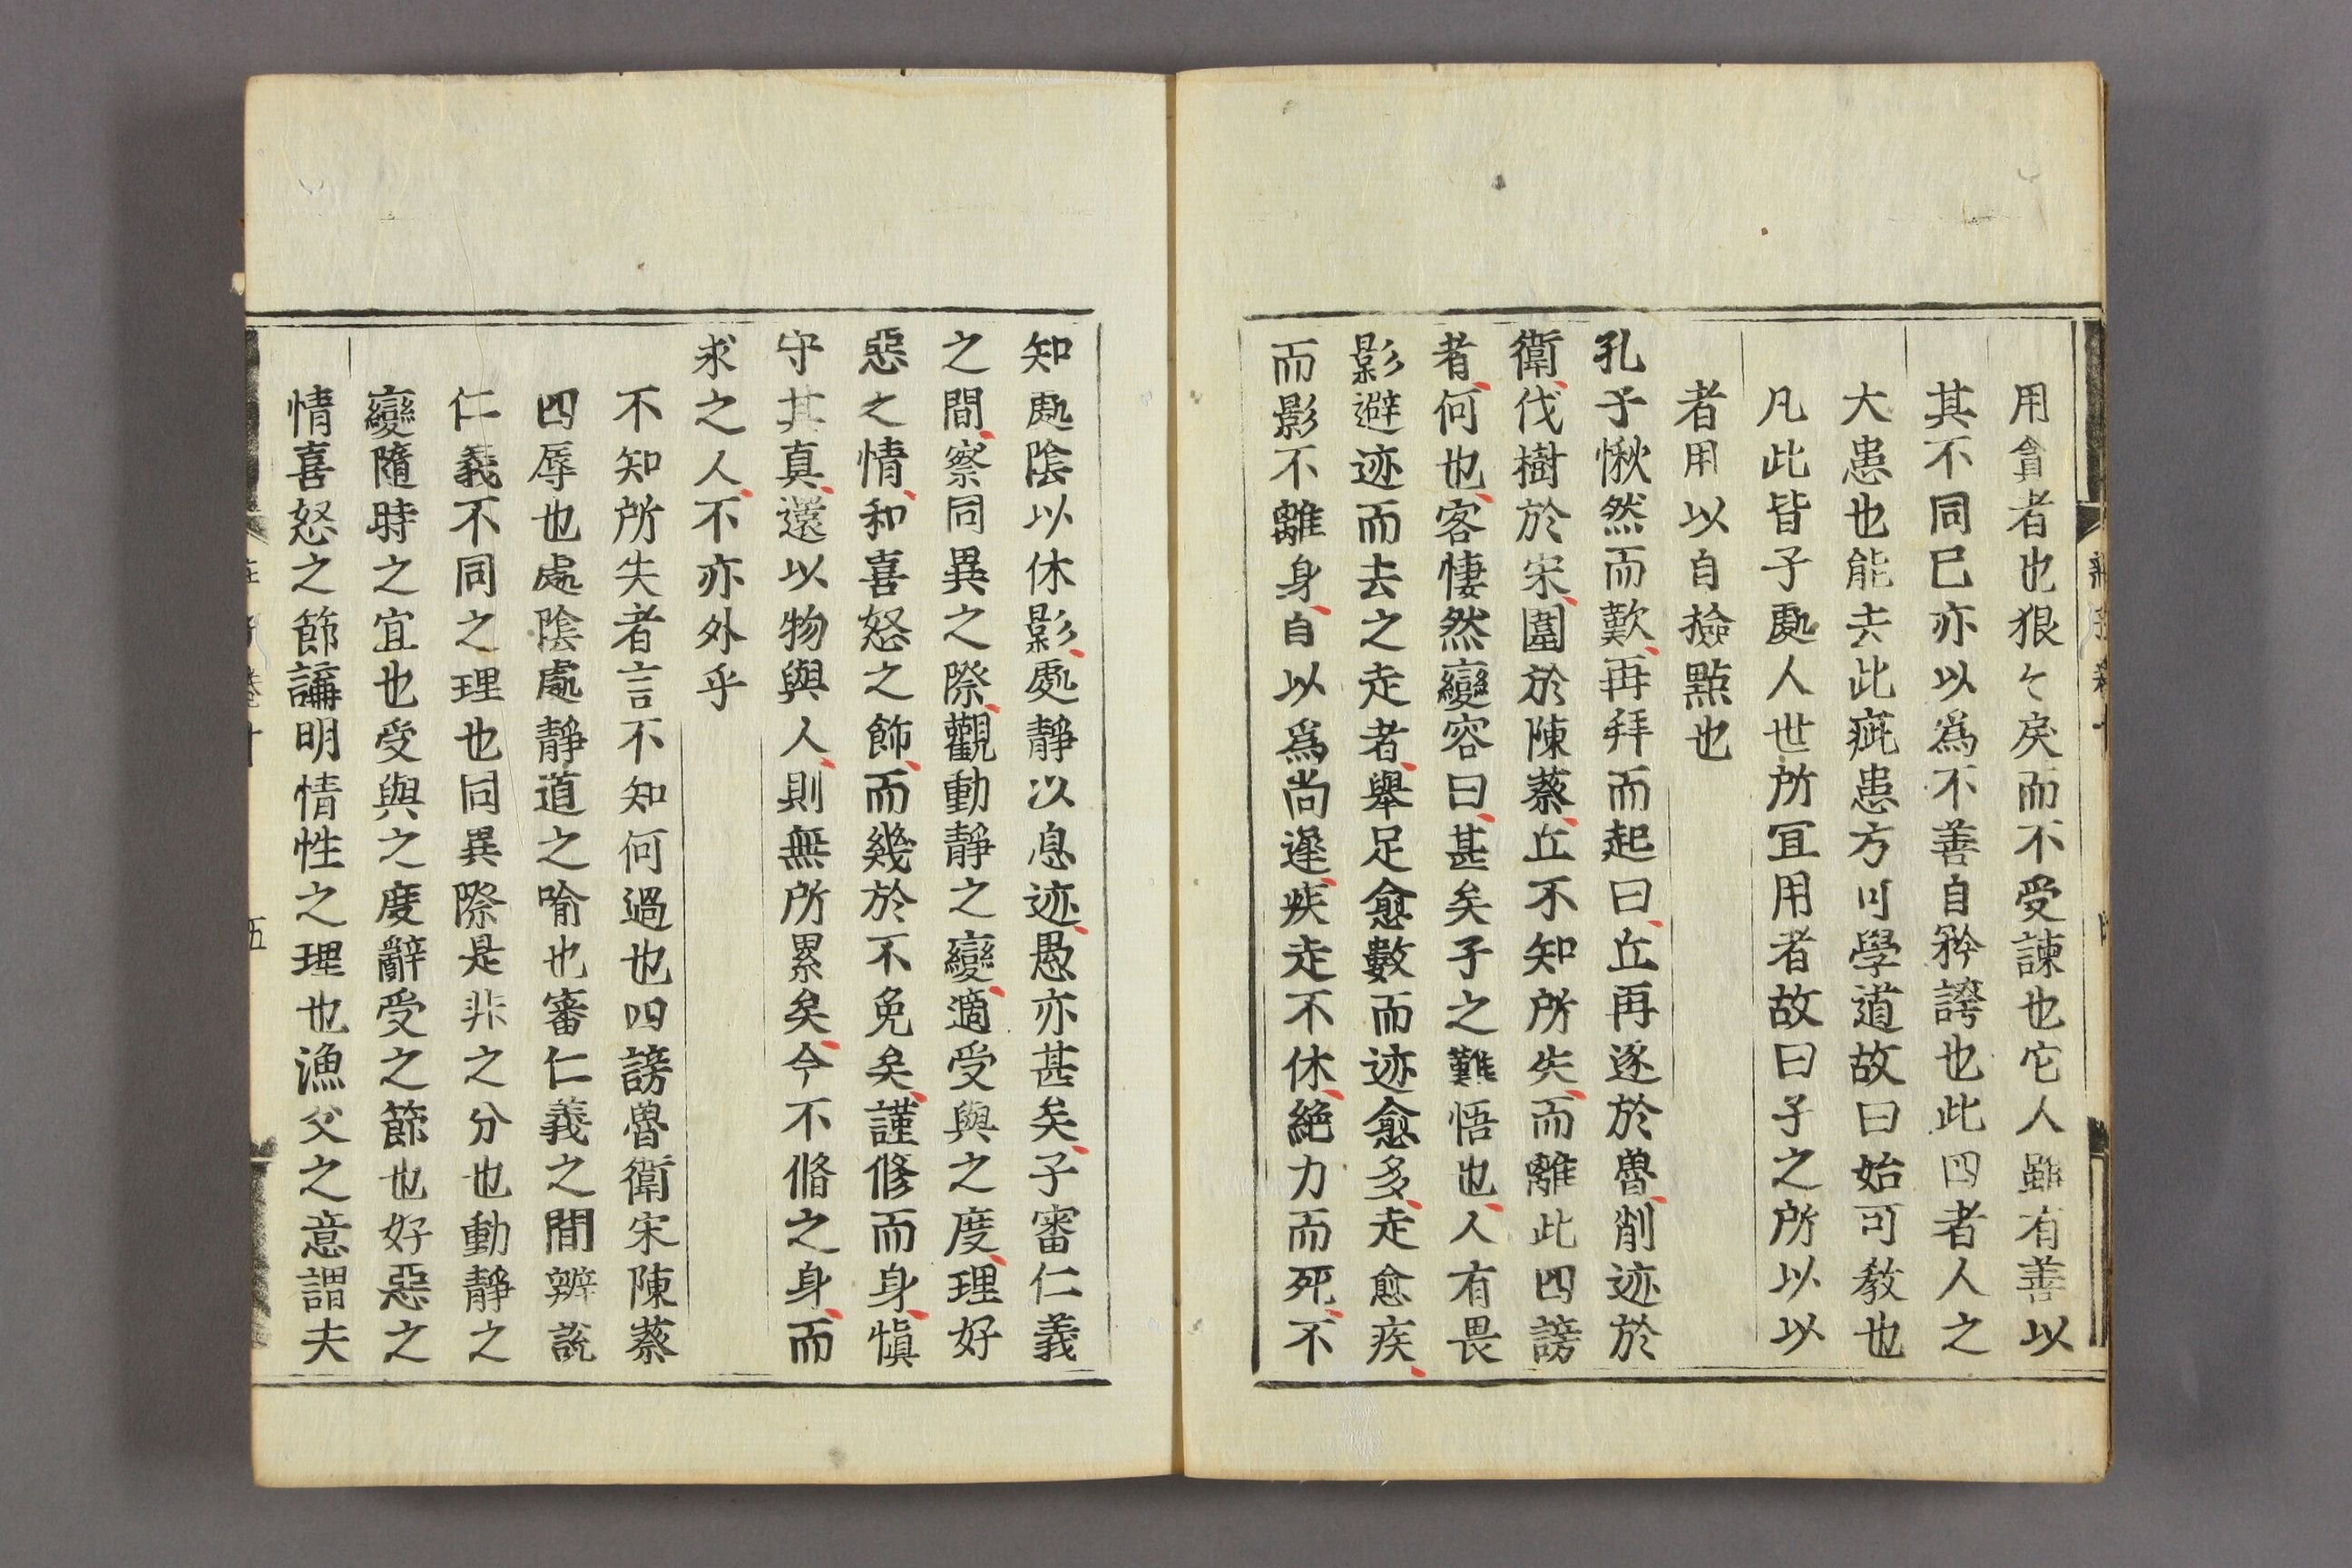 用貪者也狠々戾而不受諫也它人雖有善以
其不同已亦以爲不善自矜誇也此四者人之
大患也能去此疵患方可學道故曰始可教也
凡此皆子處人世所宜用者故曰子之所以以
者用以自撿點也
孔子愀然而歎再拜而起曰丘再逐於魯削迹於
衛伐樹於宋圍於陳蔡丘不知所失而離此四謗
者何也客悽然變容曰甚矣子之難悟也人有畏
影避迹而去之走者舉足愈數而迹愈多走愈疾
而影不離身自以爲尚遲疾走不休絶力而死不
知處陰以休影處靜以息迹愚亦甚矣子審仁義
之間察同異之際觀動靜之變適受與之度理好
惡之情和喜怒之節而幾於不免矣謹修而身愼
守其真還以物與人則無所累矣今不脩之身而
求之人不亦外乎
不知所失者言不知何過也四謗魯衛宋陳蔡
四辱也處陰處靜道之喻也審仁義之間辨說
仁義不同之理也同異際是非之分也動靜之
變隨時之宜也受與之度辭受之節也好惡之
情喜怒之節講明情性之理也漁父之意謂夫
五